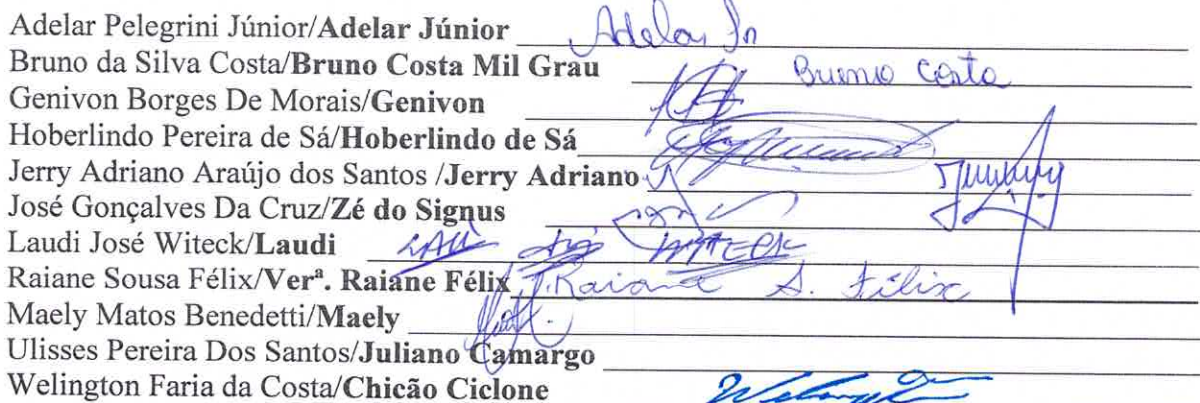 Adelar Pelegrini Júnior/Adelar Júnior Adelar Jn
Bruno da Silva Costa/Bruno Costa Mil Grau Bruno Costa
Genivon Borges De Morais/Genivon
Hoberlindo Pereira de Sá/Hoberlindo de Sá
Jerry Adriano Araújo dos Santos /Jerry Adriano
José Gonçalves Da Cruz/Zé do Signus
Laudi José Witeck/Laudi
Raiane Sousa Félix/Verª. Raiane Félix Raiane S. Félix
Maely Matos Benedetti/Maely
Ulisses Pereira Dos Santos/Juliano Camargo
Welington Faria da Costa/Chicão Ciclone